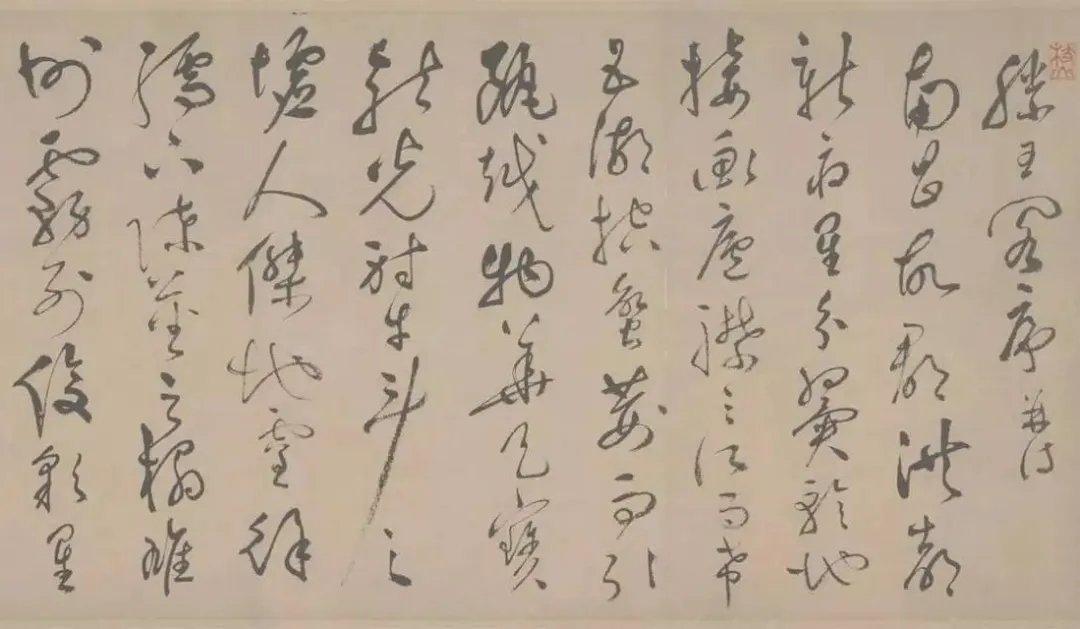 滕王閣序并詩
南昌故郡洪都
新府星分翼軫地
接衡廬襟三江而帶
五湖控蠻荊而引
甌越物華天寶
龍光射牛斗之
墟人傑地靈徐
孺下陳蕃之榻雄
州霧列俊彩星